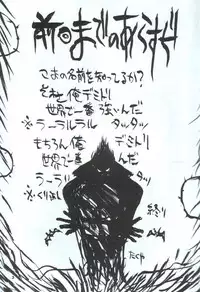 前回までのあらすじ
この名前を知ってるか?
それ俺デミトリ
世界で一番強いんだ
※ラーラルラル タッタッ
もちろん俺 デミトリ
世界で一番 んだ
ラーラリ タッ
※くりかえし
終り